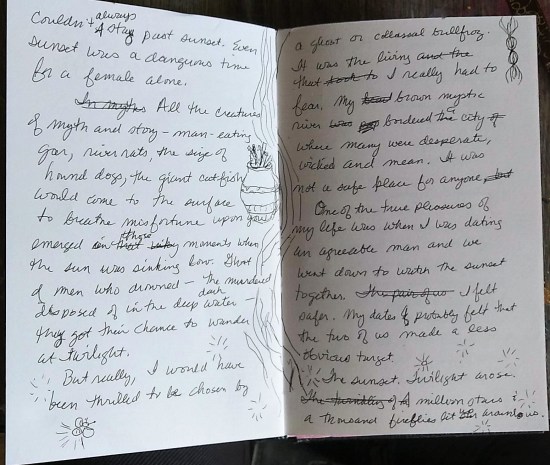 Couldn't always stay past sunset. Even
sunset was a dangerous time
for a female alone.
In myths All the creatures
of myth and story - man-eating
gar, river rats, the size of
hound dogs, the giant catfish
would come to the surface
to breathe misfortune upon you
emerged in those moments when
the sun was sinking low. Ghosts
of men who drowned - the murdered
disposed of in the deep dark water -
they got their chance to wander
at twilight.
But really, I would have
been thrilled to be chosen by
a ghost or collossal bullfrog.
It was the living and the
that I really had to
fear. My brown mystic
river bordered the city
where many were desperate,
wicked and mean. It was
not a safe place for anyone, but
One of the true pleasures of
my life was when I was dating
an agreeable man and we
went down to watch the sunset
together. The pair of us I felt
safer. My date probably felt that
the two of us made a less
obvious target.
The sunset. Twilight arose.
The twinkling of A million stars &
a thousand fireflies lit around us.